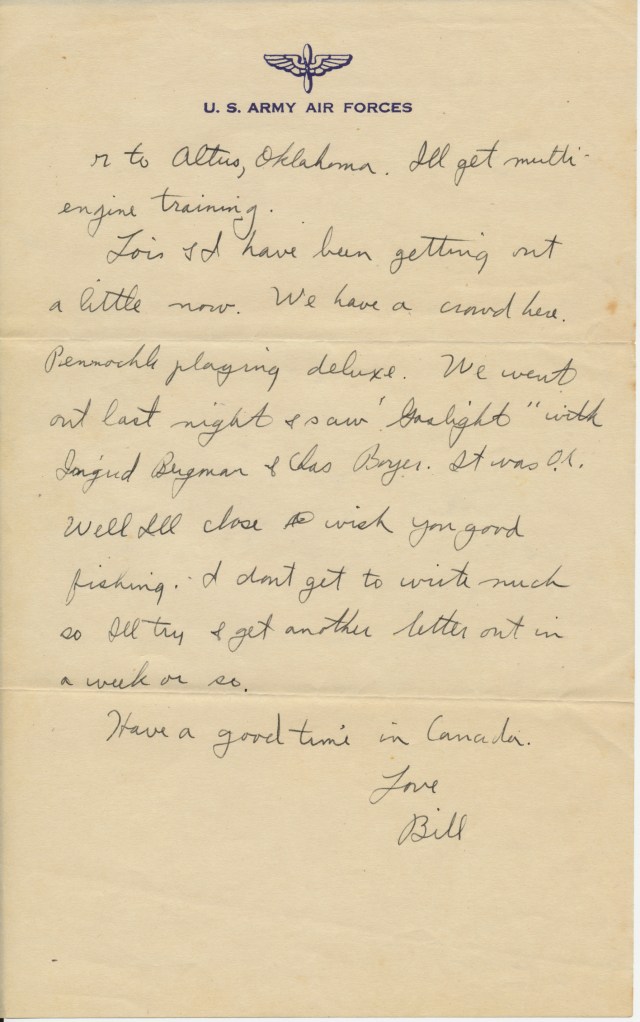 U. S. ARMY AIR FORCES
r to Altus, Oklahoma. I'll get multi-
engine training.
Lois & I have been getting out
a little now. We have a crowd here.
Pennochle playing deluxe. We went
out last night & saw "Gaslight" with
Ingrid Bergman & Chas Boyer. It was O.K.
Well I'll close & wish you good
fishing. I dont get to write much
so I'll try & get another letter out in
a week or so.
Have a good time in Canada.
Love
Bill